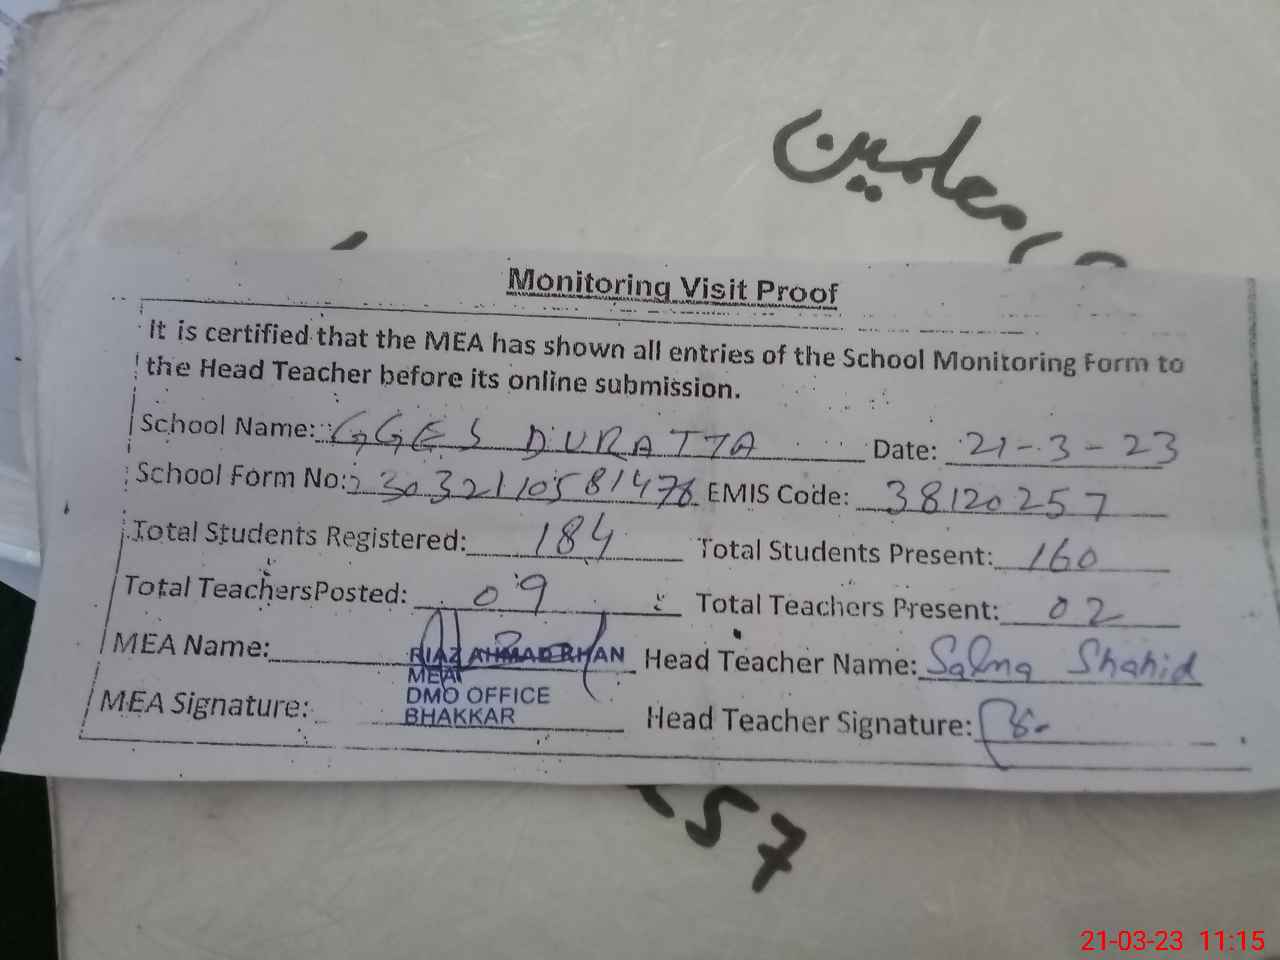 معلمین
Monitoring Visit Proof
It is certified that the MEA has shown all entries of the School Monitoring Form to
the Head Teacher before its online submission.
School Name: GGES DURATTA Date: 21-3-23
School Form No: 23032110581478 EMIS Code: 38120257
Total Students Registered: 184 Total Students Present: 160
Total TeachersPosted: 09 Total Teachers Present: 02
MEA Name: RIAZ AHMAD KHAN Head Teacher Name: Salma Shahid
MEA
DMO OFFICE
MEA Signature: BHAKKAR Head Teacher Signature:
57
21-03-23 11:15